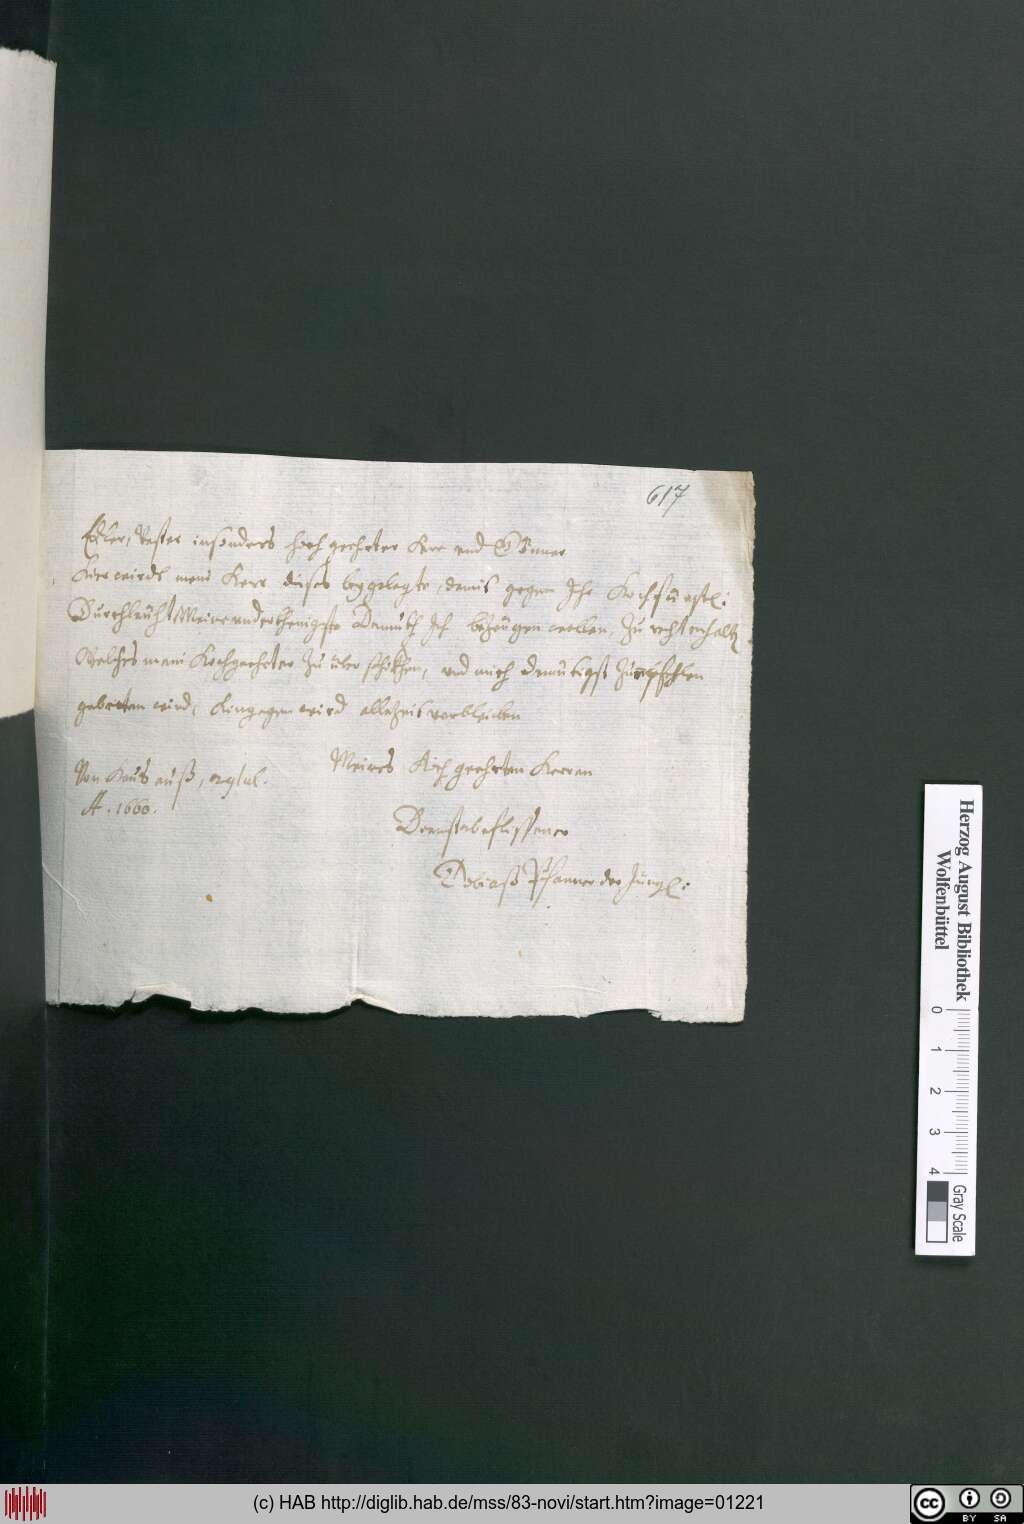 617
Edler, Vester insonders hoch geehrter Herr und Gönner
Hier wirdt mein Herr dieses beygelegte, damit gegen Ihr Hochfürstl:
Durchleucht Meine underthenigste Demuth Ich bezeugen wollen, zu recht erhaltn
Welches mein Hochgeehrter zu über schikhen, und mich demütigst zu
gebetten wird, hingegen wird allezeit verbleiben
Meines Hoch geehrten Herren
Von Haus auß,
A. 1660.
Dienstbeflissener
Tobiaß Pfanner der Jüngl:
Herzog August Bibliothek
Wolfenbüttel
0 1 2 3 4
Gray Scale
(c) HAB http://diglib.hab.de/mss/83-novi/start.htm?image=01221
cc BY SA